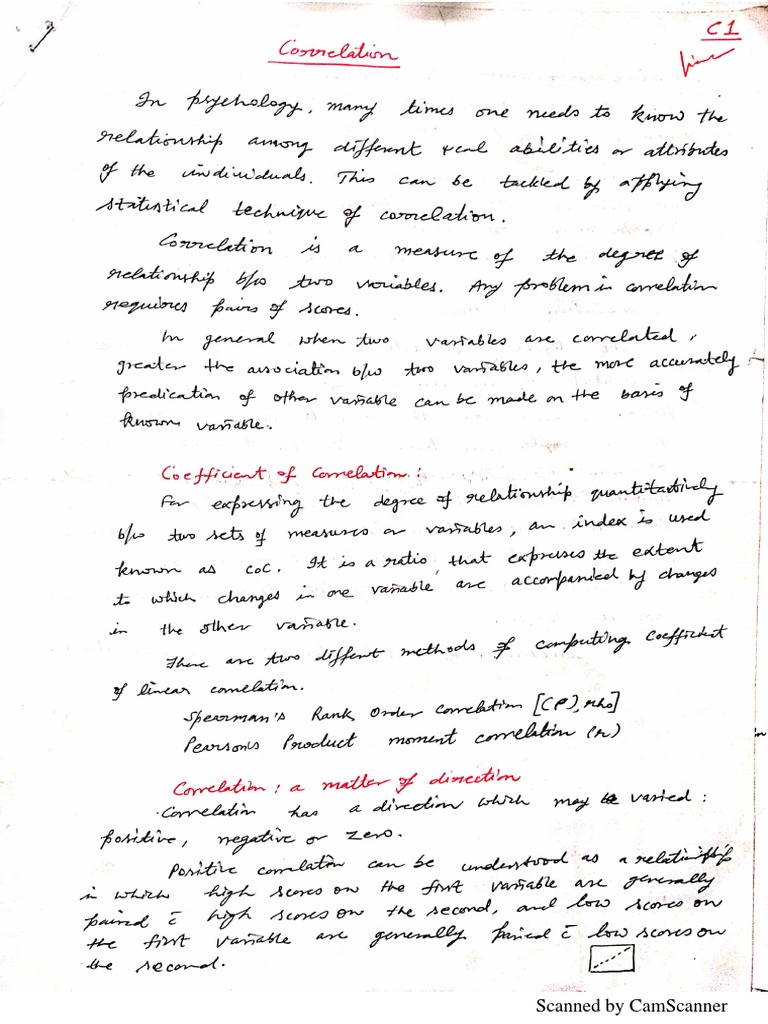 C1
Correlation
In psychology, many times one needs to know the
relationship among different abilities or attributes
of the individuals. This can be tackled by applying
statistical technique of correlation.
Correlation is a measure of the degree of
relationship b/w two variables. Any problem in correlation
requires pairs of scores.
In general when two variables are correlated,
greater the association b/w two variables, the more accurately
predication of other variable can be made on the basis of
known variable.
Coefficient of Correlation :
For expressing the degree of relationship quantitactively
b/w two sets of measures or variables, an index is used
known as COC. It is a ratio that expresses the extent
to which changes in one variable are accompanied by changes
in the other variable.
There are two diffent methods of computing coefficient
of linear correlation.
Spearman's Rank Order Correlation [(ρ), rho]
Pearson's Product moment correlation (r)
Correlation : a matter of direction
Correlation has a direction which may be varied :
positive, negative or zero.
Positive correlation can be understood as a relationship
in which high scores on the first variable are generally
paired c̄ high scores on the second, and low scores on
the first variable are generally paired c̄ low scores on
the second.
Scanned by CamScanner